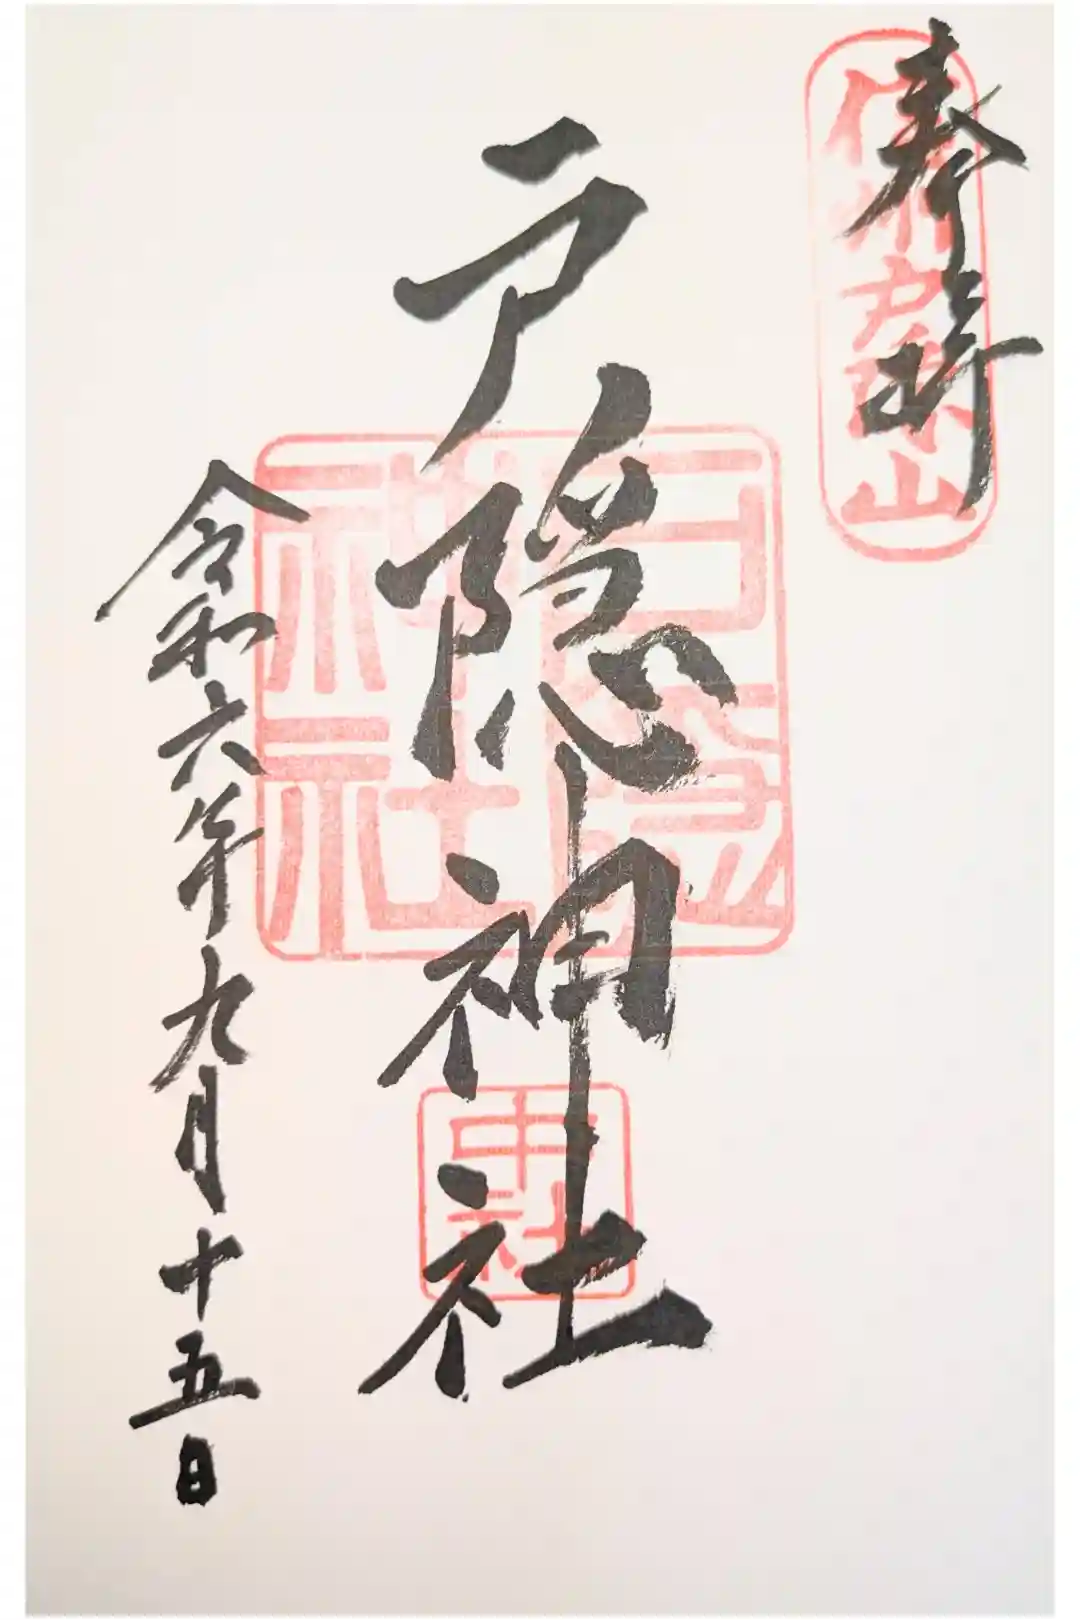 奉拝
信州戸隠山
戸隠神社
戸隠
神社
中社
令和六年九月十五日